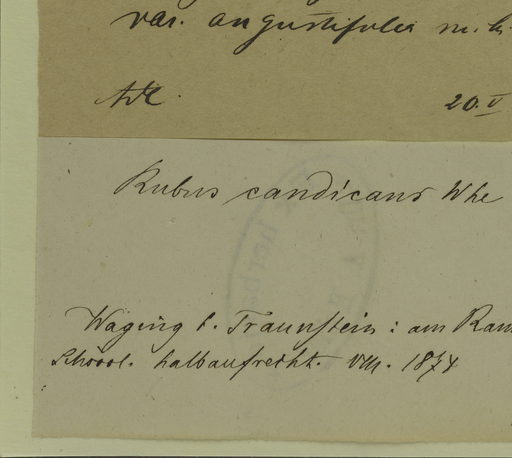 var. angustifolia m. h.
20. V
Rubus candicans Whe
Waging b. Traunstein: am Ram
Schössl. halbaufrecht. VIII. 1874